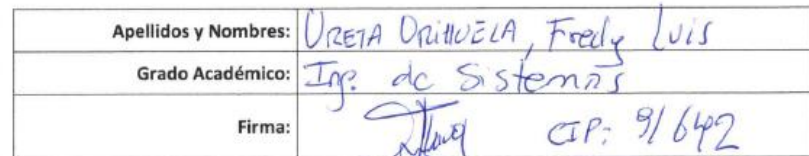 Apellidos y Nombres: URETA ORIHUELA, Fredy Luis
Grado Académico: Ing. de Sistemas
Firma: CIP: 91642